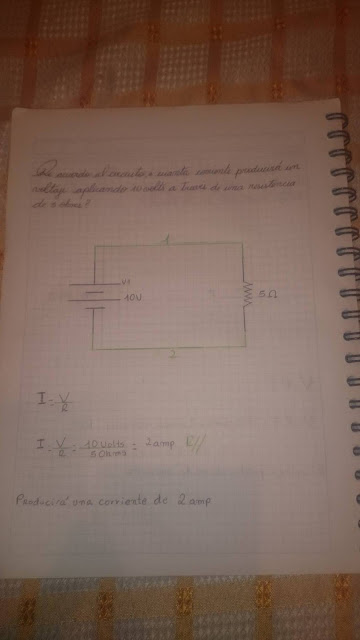 De acuerdo al circuito, ¿cuánta corriente producirá un
voltaje aplicando 10 volts a Través de una resistencia
de 5 ohms?
1
V1
10V
5Ω
2
I = V/R
I = V/R = 10 Volts/5 Ohms = 2 amp R//
Producirá una corriente de 2 amp